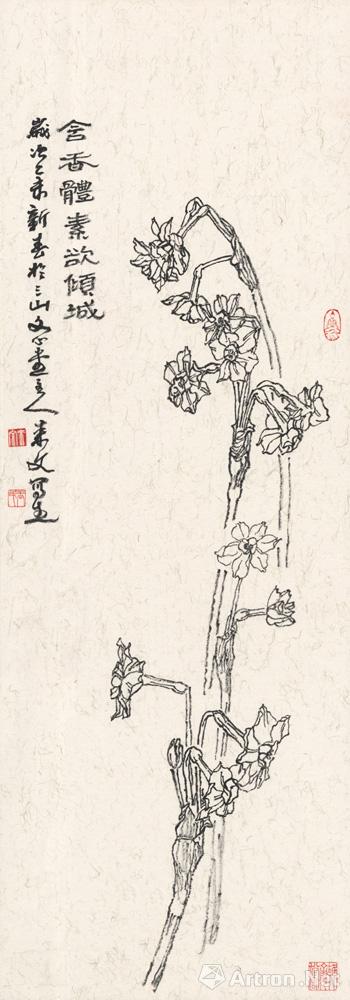 含香體素欲傾城
歲次乙未新春於三山文心畫主人
米文寫生
Artron.Net